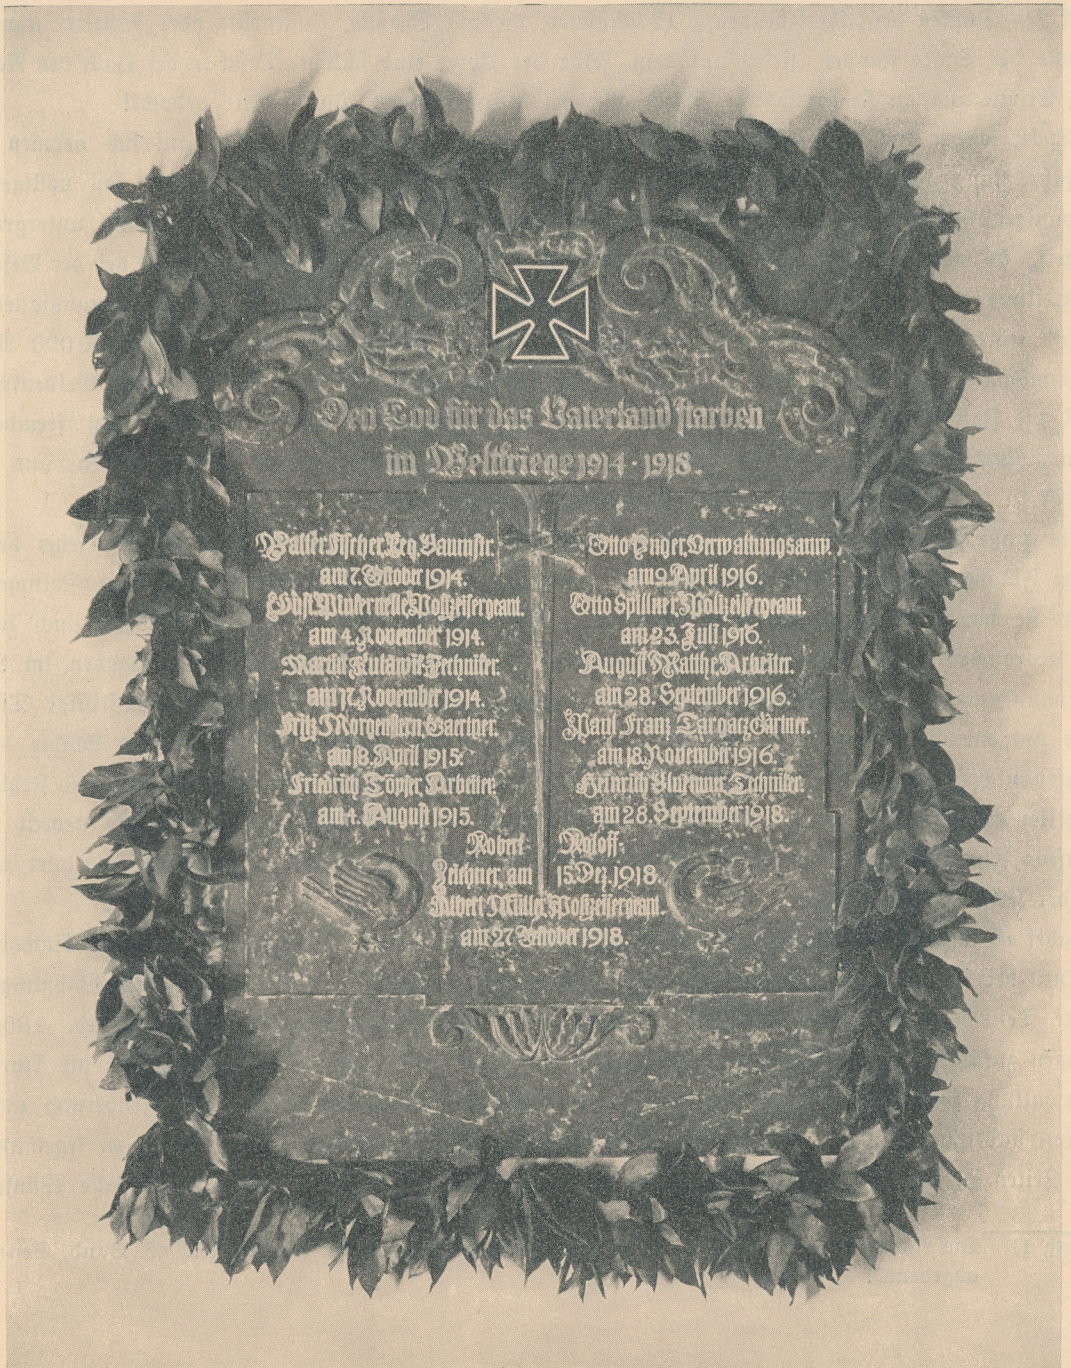 Den Tod für das Vaterland starben
im Weltkriege 1914-1918.
Walter Fischer Reg. Baumstr.
am 7. Oktober 1914.
Polizeisergeant.
am 4. November 1914.
Martin Techniker.
am 17. November 1914.
Fritz Morgenstern, Gärtner.
am 8. April 1915.
Friedrich Töpfer Arbeiter.
am 4. August 1915.
Otto Unger, Verwaltungsanw.
am 9. April 1916.
Otto Spillner, Polizeisergeant.
am 23. Juli 1916.
August Matthe Arbeiter.
am 28. September 1916.
Franz Gärtner.
am 18. November 1916.
Heinrich
am 28. September 1918.
Robert Roloff,
Zeichner, am 15. Dez. 1918.
Albert Müller, Polizeisergeant.
am 27. Oktober 1918.